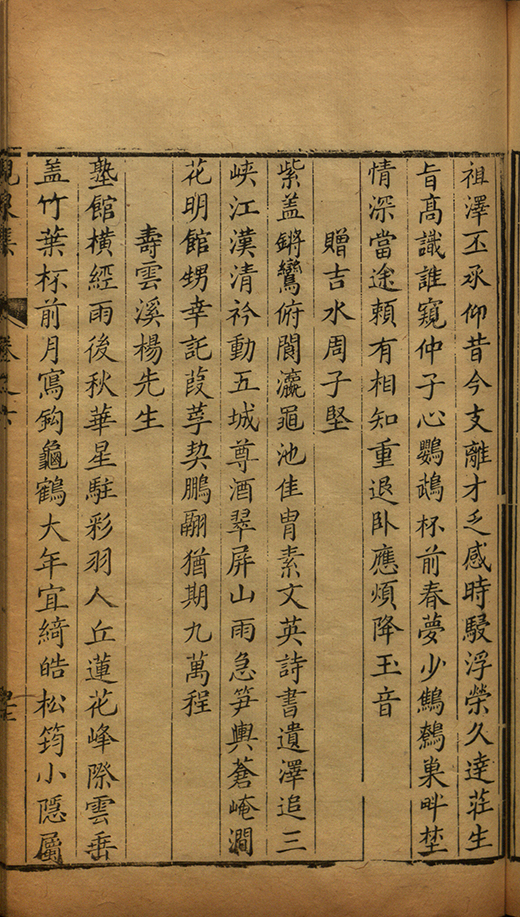 祖澤丕承仰昔今支離才乏感時駸浮榮久達莊生
旨高識誰窺仲子心鸚鵡杯前春夢少鷦鷯巢畔埜
情深當途賴有相知重退臥應煩降玉音
贈吉水周子堅
紫盖鏘鸞俯閬瀛黽池佳胄素文英詩書遺澤追三
峽江漢清衿動五城尊酒翠屏山雨急笋輿蒼崦澗
花明館甥幸託葭莩契鵬翮猶期九萬程
壽雲溪楊先生
塾館橫經雨後秋華星駐彩羽人丘蓮花峰際雲垂
盖竹葉杯前月寫鈎龜鶴大年宜綺皓松筠小隱屬